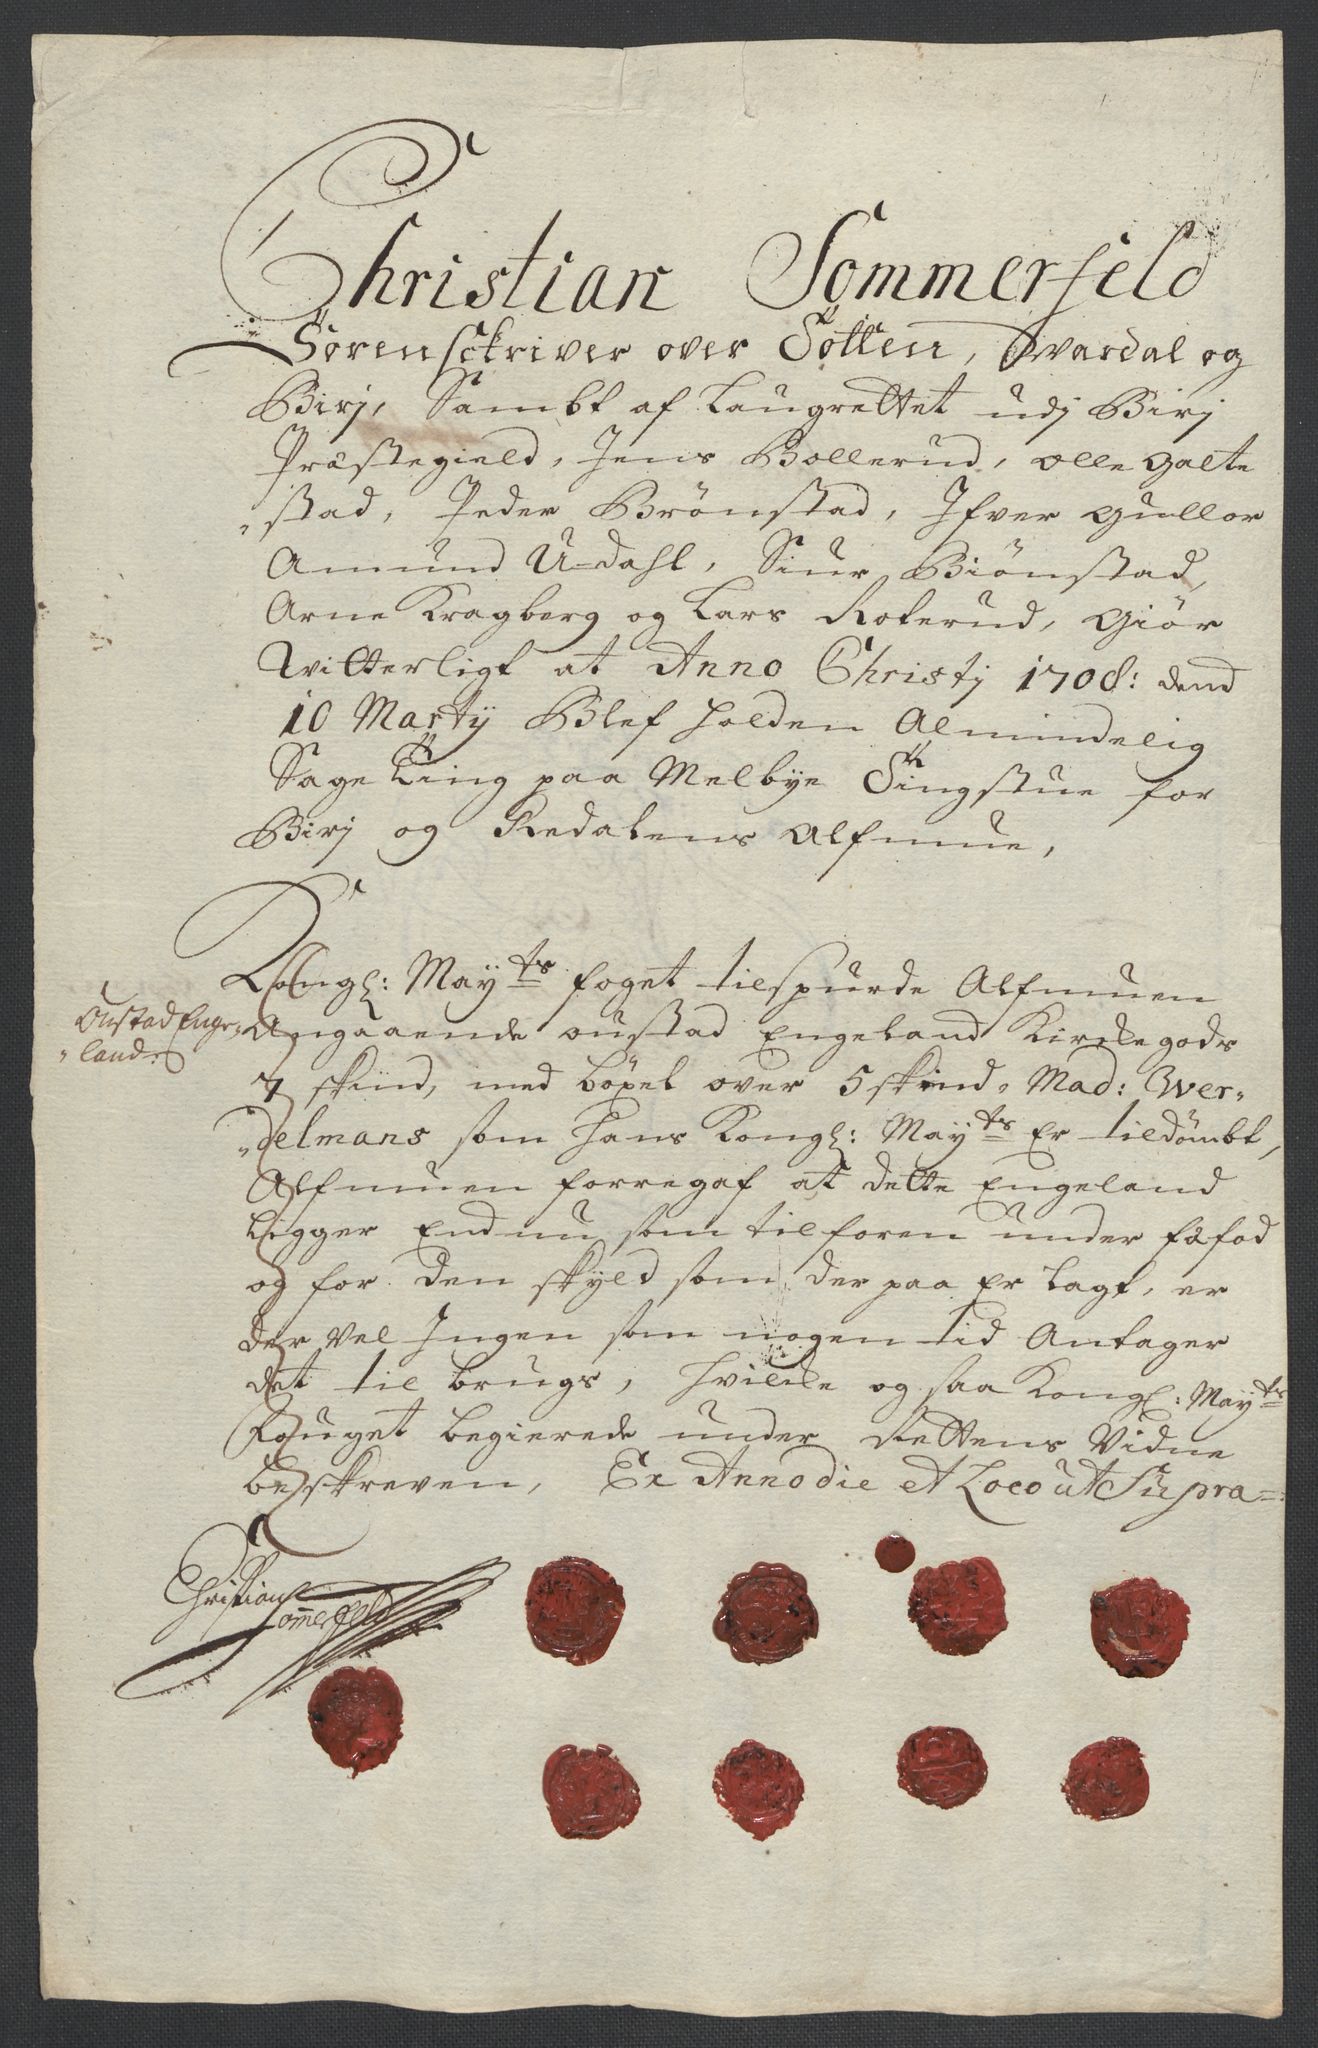 Christian Sommerfeld
Sorenschriver over Totten, Wardal og
Birj, Sambt af Laugrettet udj Birj
Præstegield, Jens Bollerud, Olle Galte
„stad, Peder Brønstad, Ifver Gullor
Amund U-dahl, Siur Biönstad,
Arne Kragberg og Lars Roterud, Giör
Witterligt at Anno Christj 1708: dend
10 Martij Blef holden Almindelig
Sage Ting paa Melbye Tingstue for
Birj og Redalens Alfmue,
Kongl: Mayts foget tilspurde Alfmuen
Oustad Enge-
„land
Angaaende oustad Engeland Kirchegods
7 skind, med böxel over 5 skind, Mad: Wer„
„delmans som hans Kongl: Mayts Er tildömbt,
Alfmuen forregaf at dette Engeland
ligger End nu som tilforen under fæfod
og for den skyld som der paa Er lagt, er
der vel Ingen som nogen tid Antager
det til brugs, hvilke og saa Kongl: Mayts
Fouget begierede under Rettens Vidne
beskreven, Ex Anno die et Loco ut Supra
Christian
Sommerfeld